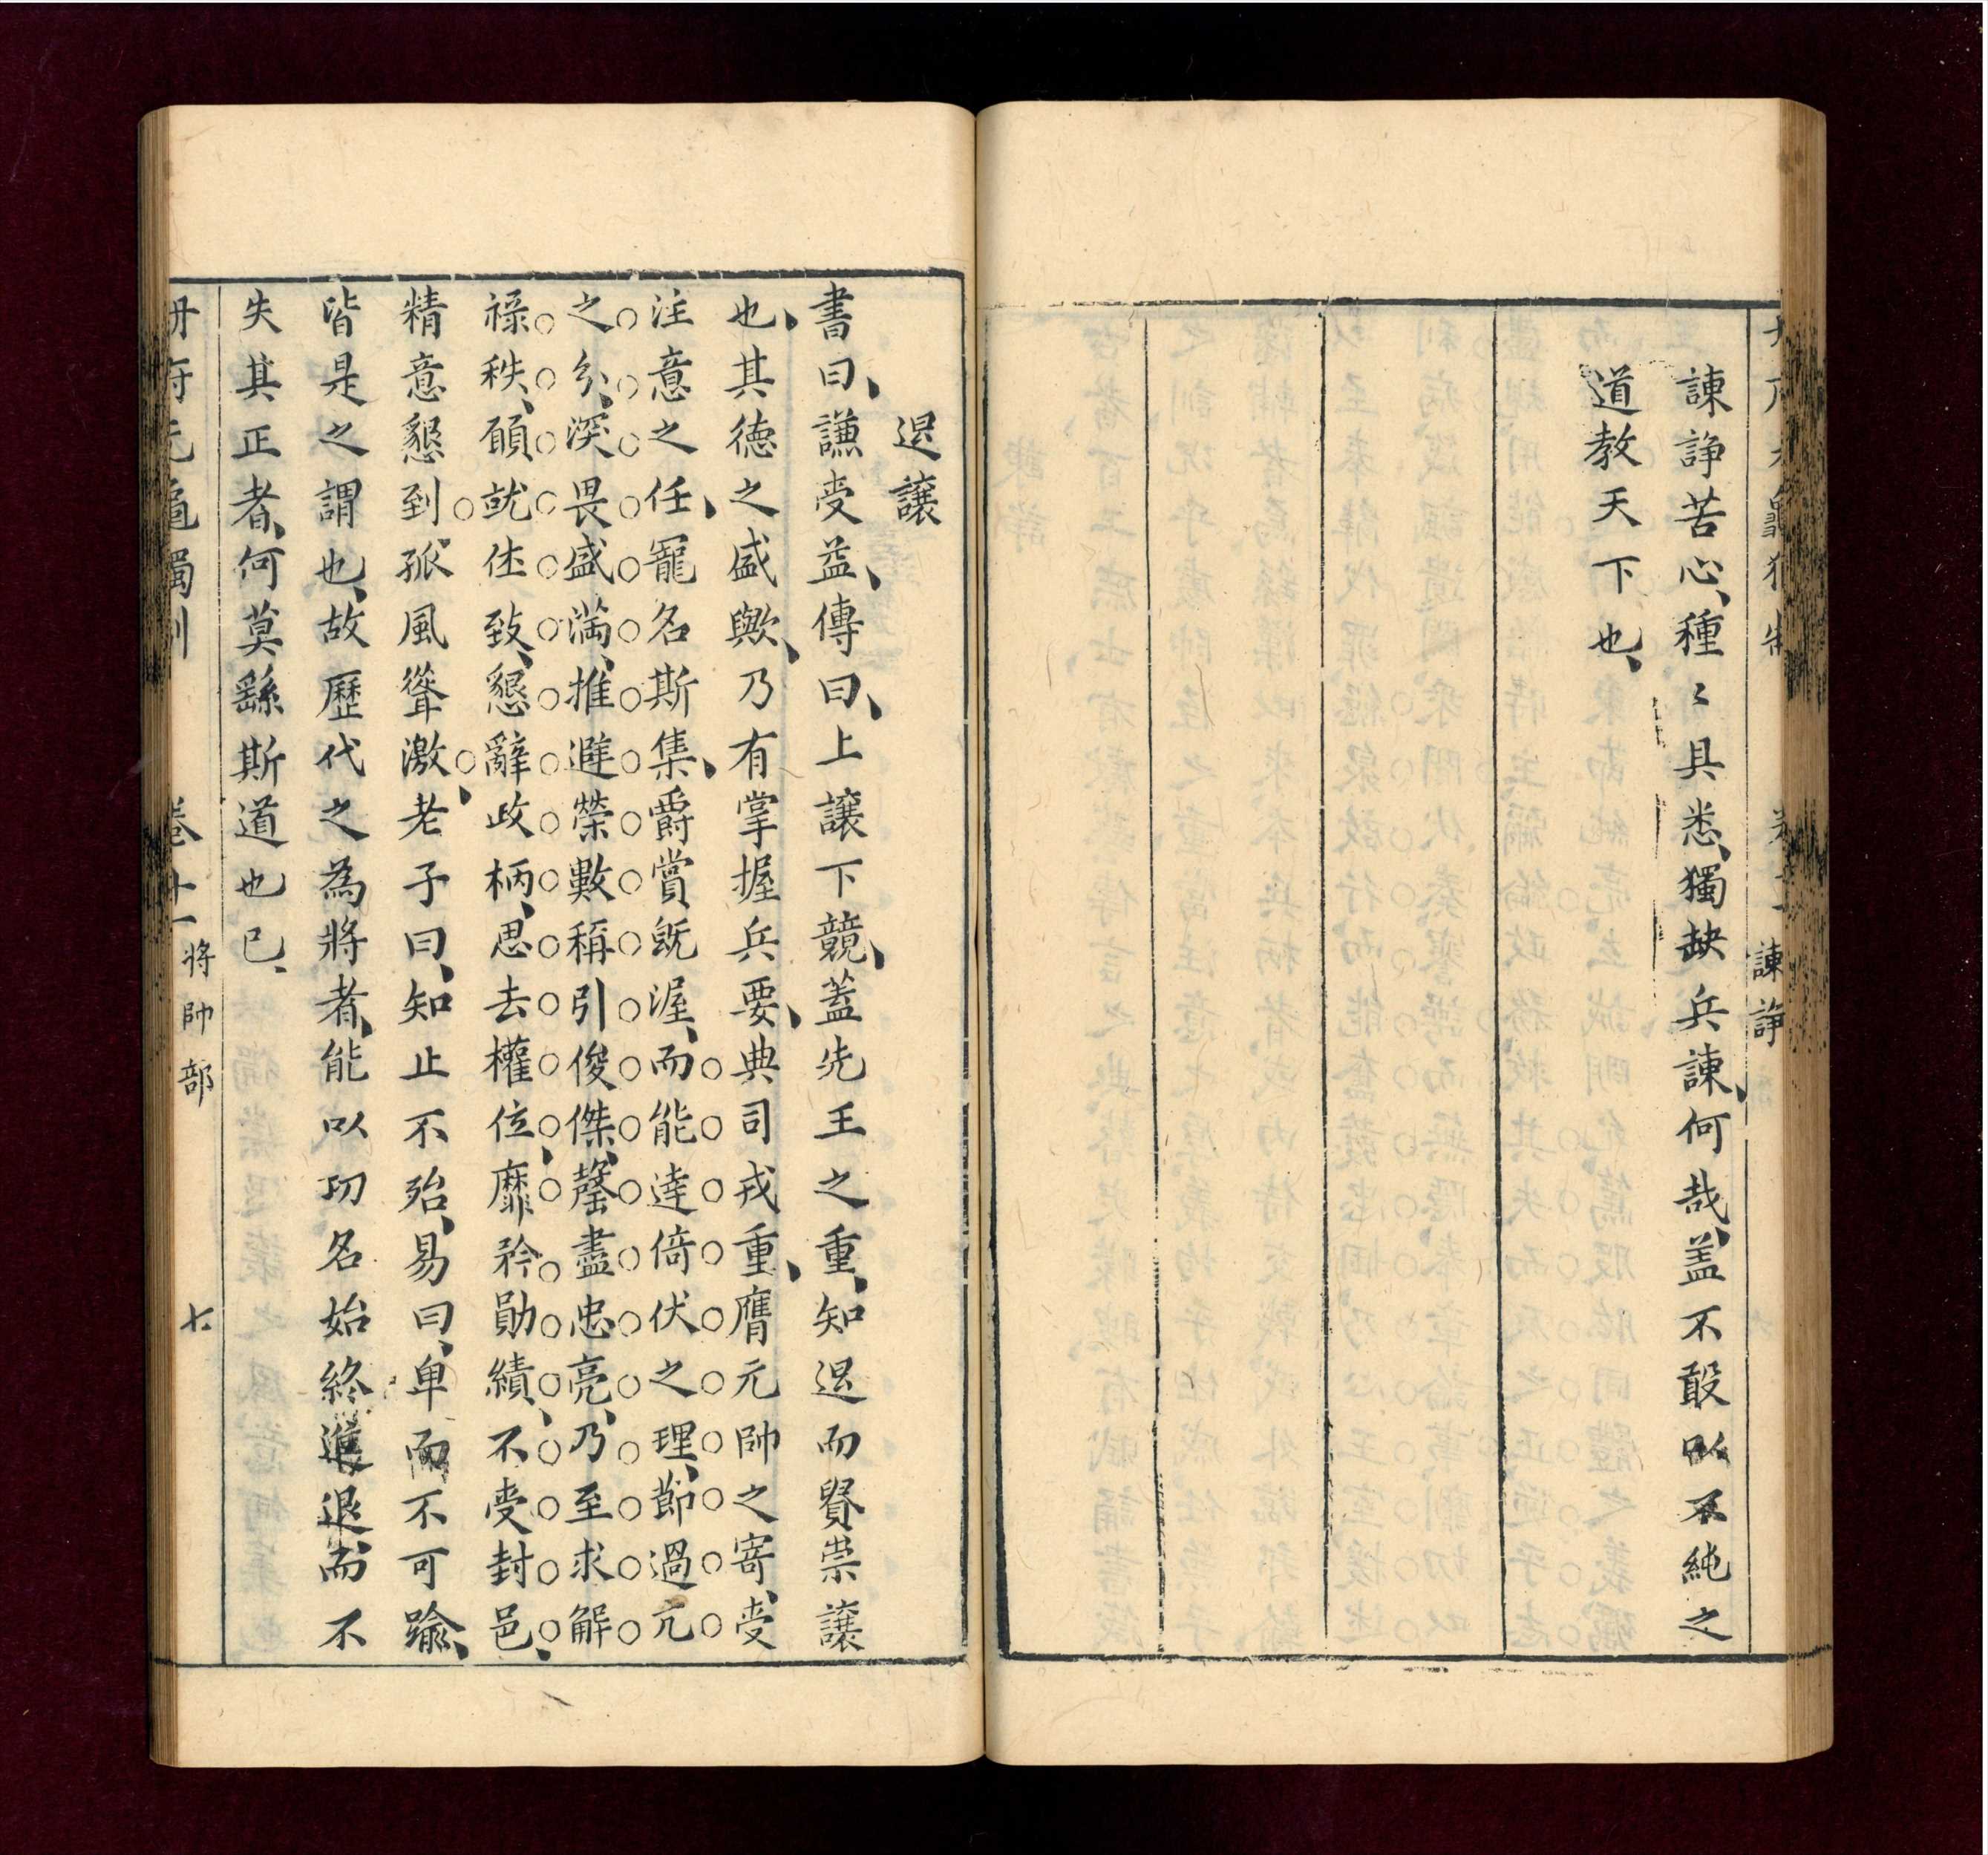 諫諍
諫諍苦心、種〻具悉、獨缺兵諫、何哉、盖不敢以不純之
道教天下也、
退讓
書曰、謙受益、傳曰、上讓下競、葢先王之重、知退而賢崇讓
也、其德之盛歟、乃有掌握兵要、典司戎重、膺元帥之寄、受
注意之任、寵名斯集、爵賞旣渥、而能達倚伏之理、節過亢
之分、深畏盛滿、推避榮數、稱引俊傑、罄盡忠亮、乃至求解
祿秩、願就任致、懇辭政柄、思去權位、靡矜勛績、不受封邑、
精意懇到、孤風聳激、老子曰、知止不殆、易曰、卑而不可踰、
皆是之謂也、故歷代之為將者、能以功名始終進退而不
失其正者、何莫繇斯道也已、
冊府元龜獨制 卷十一 將帥部 七